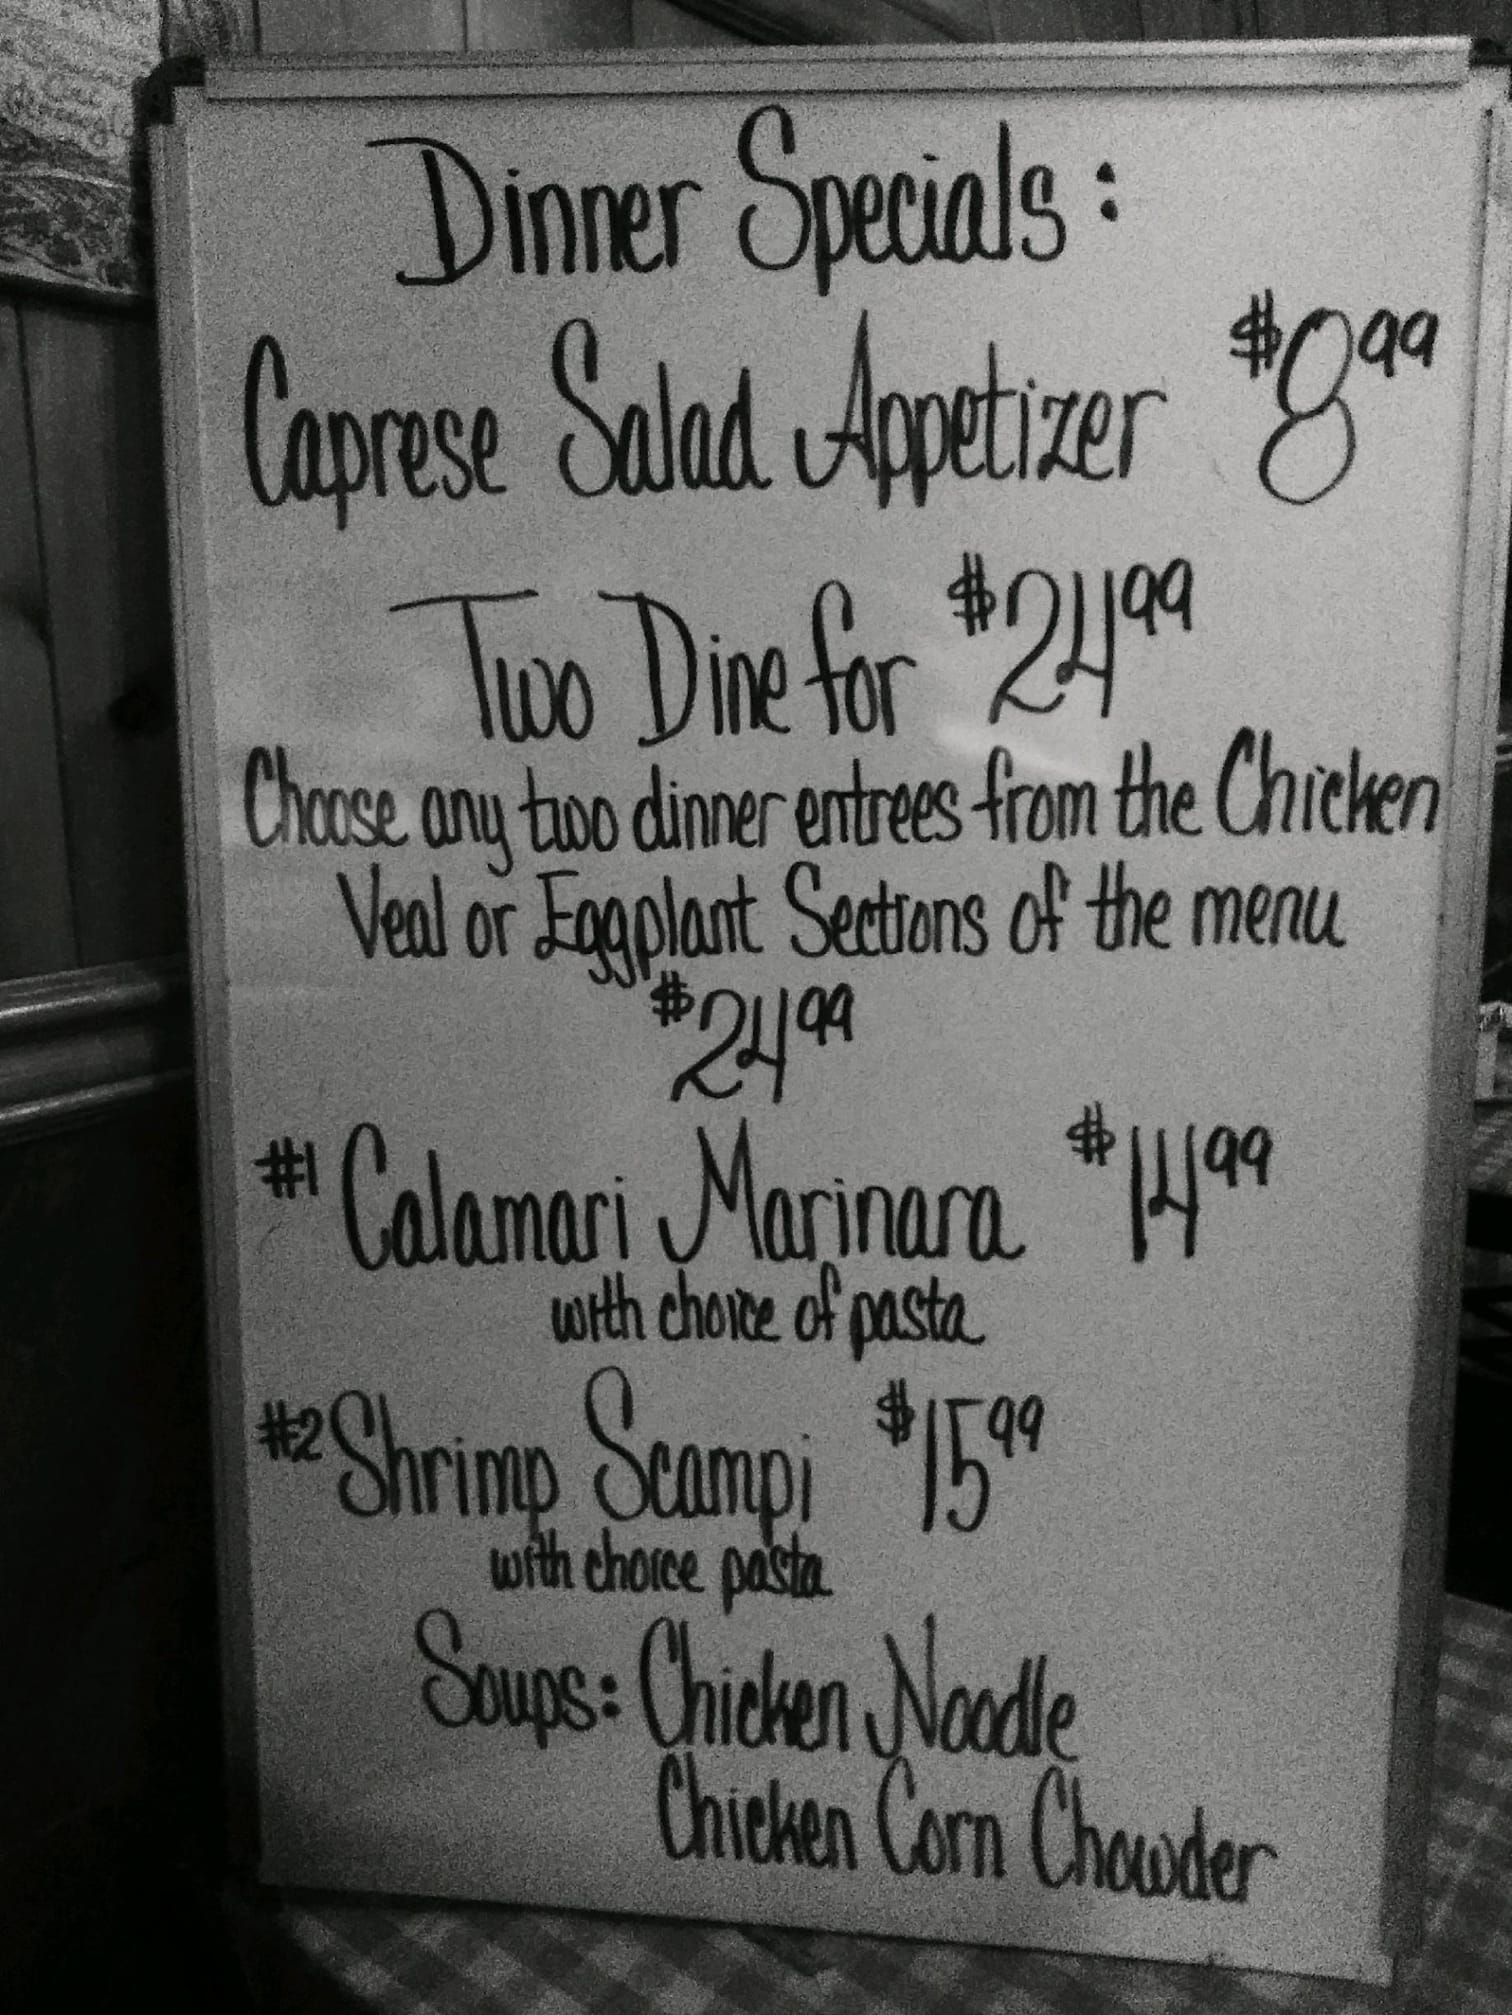 Dinner Specials:
Caprese Salad Appetizer $8.99
Two Dine for $24.99
Choose any two dinner entrees from the Chicken
Veal or Eggplant Sections of the menu
$24.99
#1 Calamari Marinara $14.99
with choice of pasta
#2 Shrimp Scampi $15.99
with choice pasta
Soups: Chicken Noodle
Chicken Corn Chowder